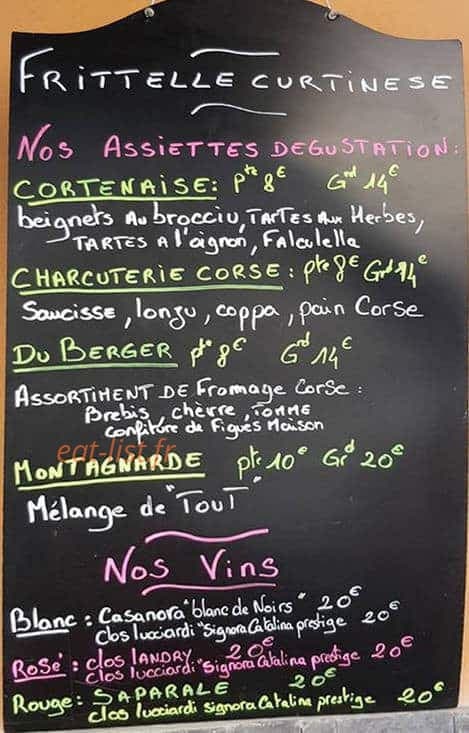 FRITTELLE CURTINESE
NOS ASSIETTES DEGUSTATION:
CORTENAISE: pte 8€ Grd 14€
beignets Au brocciu, TARTES Aux Herbes,
TARTES A l'oignon, Falculella
CHARCUTERIE CORSE: pte 8€ Grd 14€
Saucisse, lonzu, coppa, pain Corse
DU BERGER pte 8€ Grd 14€
ASSORTIMENT DE Fromage Corse:
Brebis, chèvre, TOMME
confiture de Figues Maison
eat-list.fr
MONTAGNARDE pte 10€ Grd 20€
Mélange de "TOUT"
NOS VINS
Blanc: Casanora "blanc de Noirs" 20€
clos lucciardi "Signora Catalina prestige 20€
ROSé: clos LANDRY 20€
clos lucciardi "Signora Catalina prestige 20€
Rouge: SAPARALE 20€
clos lucciardi signora Catalina prestige 20€